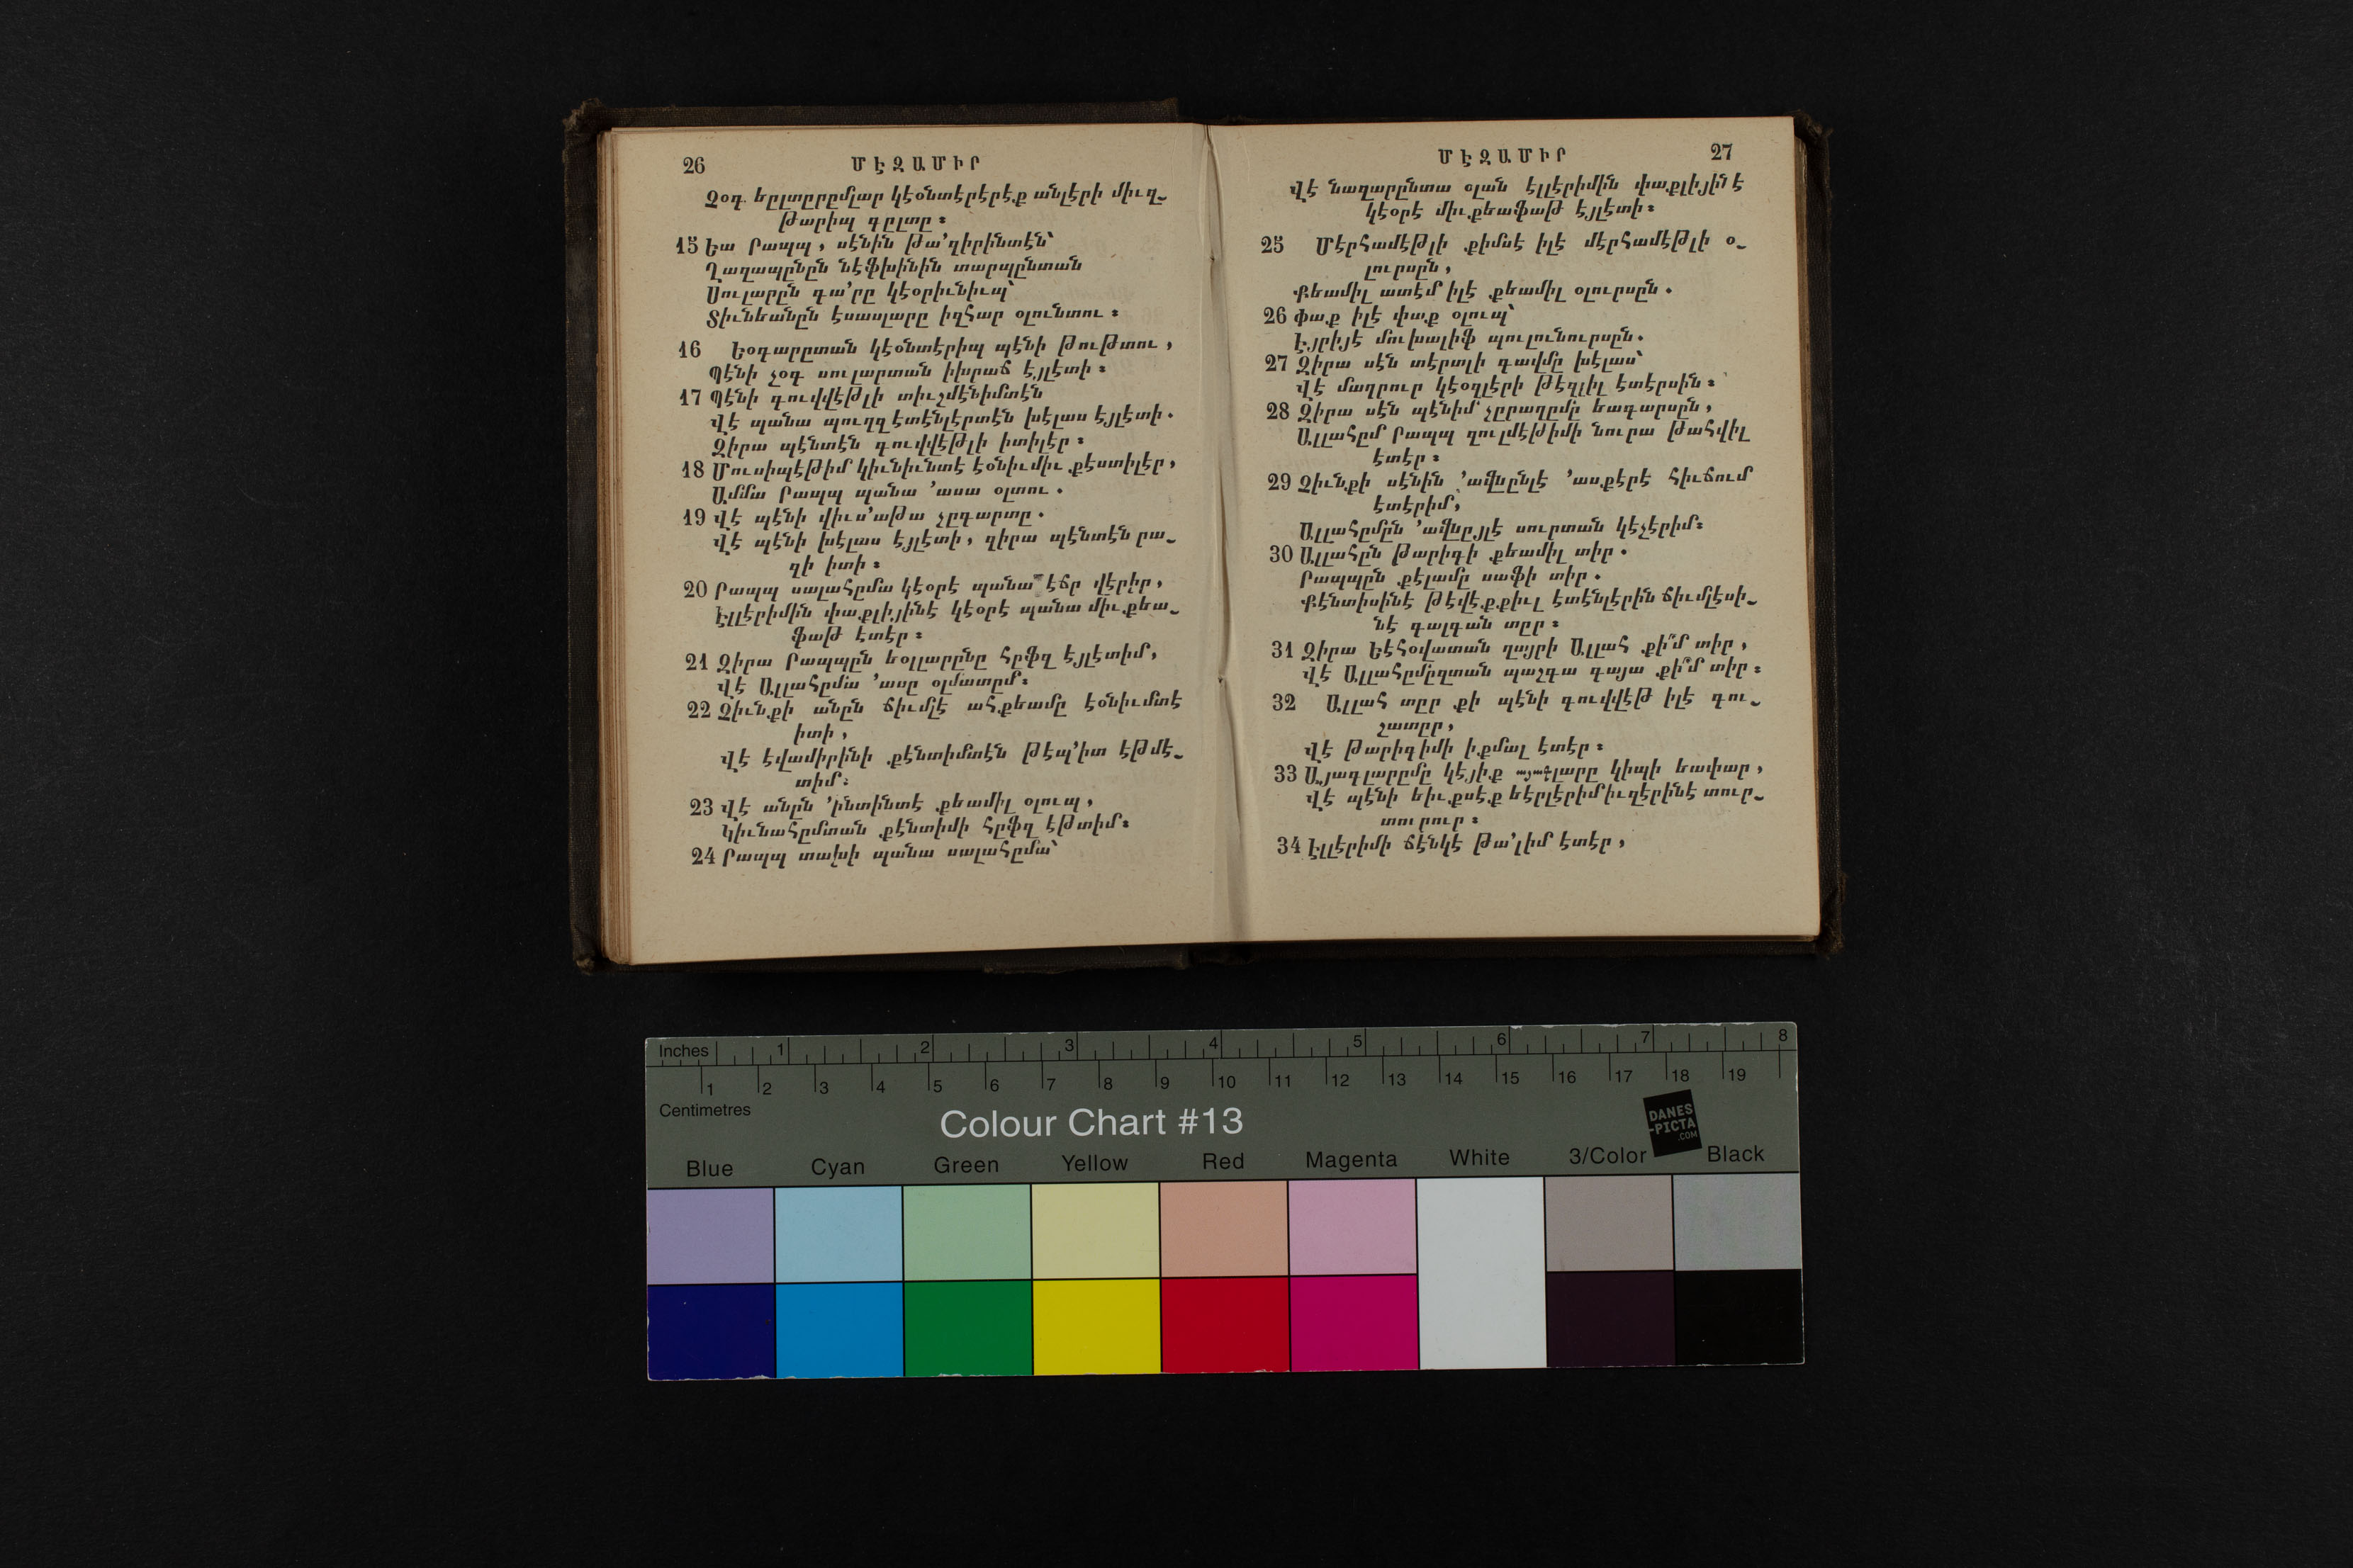 26
ՄԷԶԱՄԻՐ
Չօգ եըլտըրըմլար կէօնտէրէրէք անլէրի միւզ֊
թարիպ գըլտը ։
15 Եա Րապպ, սէնին թա՚զիրինտէն՝
Ղազապընըն նէֆխինին տարպընտան
Սուլարըն գա՚րը կէօրիւնիւպ՝
Տիւնեանըն էսասլարը իզհար օլունտու ։
16 Եօգարըտան կէօնտէրիպ պէնի թութտու,
Պէնի չօգ սուլարտան իխրաճ էյլէտի ։
17 Պէնի գուվվէթլի տիւշմէնիմտէն
Վէ պանա պուղզ էտէնլէրտէն խէլաս էյլէտի.
Զիրա պէնտէն գուվվէթլի իտիլէր ։
18 Մուսիպէթիմ կիւնիւնտէ էօնիւմիւ քէստիլէր,
Ամմա Րապպ պանա ՚ասա օլտու.
19 Վէ պէնի վիւս՚աթա չըգարտը.
Վէ պէնի խէլաս էյլէտի, զիրա պէնտէն րա֊
զի իտի ։
20 Րապպ սալահըմա կէօրէ պանա էճր վէրիր,
Էլլէրիմին փաքլիյինէ կէօրէ պանա միւքեա֊
ֆաթ էտէր ։
21 Զիրա Րապպըն եօլլարընը հըֆզ էյլէտիմ,
Վէ Ալլահըմա ՚ասը օլմատըմ ։
22 Չիւնքի անըն ճիւմլէ ահքեամը էօնիւմտէ
իտի,
Վէ էվամիրինի քէնտիմտէն թէպ՚իտ էթմէ֊
տիմ ։
23 Վէ անըն ՚ինտինտէ քեամիլ օլուպ,
Կիւնահըմտան քէնտիմի հըֆզ էթտիմ ։
24 Րապպ տախի պանա սալահըմա՝
27
ՄԷԶԱՄԻՐ
Վէ նազարընտա օլան էլլէրիմին փաքլիյինէ
կէօրէ միւքեաֆաթ էյլէտի ։
25 Մէրհամէթլի քիմսէ իլէ մէրհամէթլի օ֊
լուրսըն,
Քեամիլ ատէմ իլէ քեամիլ օլուրսըն.
26 Փաք իլէ փաք օլուպ՝
Էյրիյէ մուխալիֆ պուլունուրսըն.
27 Զիրա սէն տէրտլի գավմը խէլաս՝
Վէ մաղրուր կէօզլէրի թէզլիլ էտէրսին ։
28 Զիրա սէն պէնիմ չըրաղըմը եագարսըն,
Ալլահըմ Րապպ զուլմէթիմի նուրա թահվիլ
էտէր ։
29 Չիւնքի սէնին ՚ավնընլէ ՚ասքէրէ հիւճում
էտէրիմ,
Ալլահըմըն ՚ավնըյլէ սուրտան կէչէրիմ ։
30 Ալլահըն թարիգի քեամիլ տիր.
Րապպըն քէլամը սաֆի տիր.
Քէնտիսինէ թէվէքքիւլ էտէնլէրին ճիւմլէսի֊
նէ գալգան տըր ։
31 Զիրա Եէհօվատան ղայրի Ալլահ քի՞մ տիր,
Վէ Ալլահըմըզտան պաշգա գայա քի՞մ տիր ։
32 Ալլահ տըր քի պէնի գուվվէթ իլէ գու֊
շատըր,
Վէ թարիգիմի իքմալ էտէր ։
33 Այագլարըմը կէյիք այագլարը կիպի եափար,
Վէ պէնի եիւքսէք եէրլէրիմ իւզէրինէ տուր֊
տուրուր ։
34 Էլլէրիմի ճէնկէ թա՚լիմ էտէր,
Inches 1 2 3 4 5 6 7 8
1 2 3 4 5 6 7 8 9 10 11 12 13 14 15 16 17 18 19
Centimetres
Colour Chart #13
DANES
-PICTA
.COM
Blue Cyan Green Yellow Red Magenta White 3/Color Black